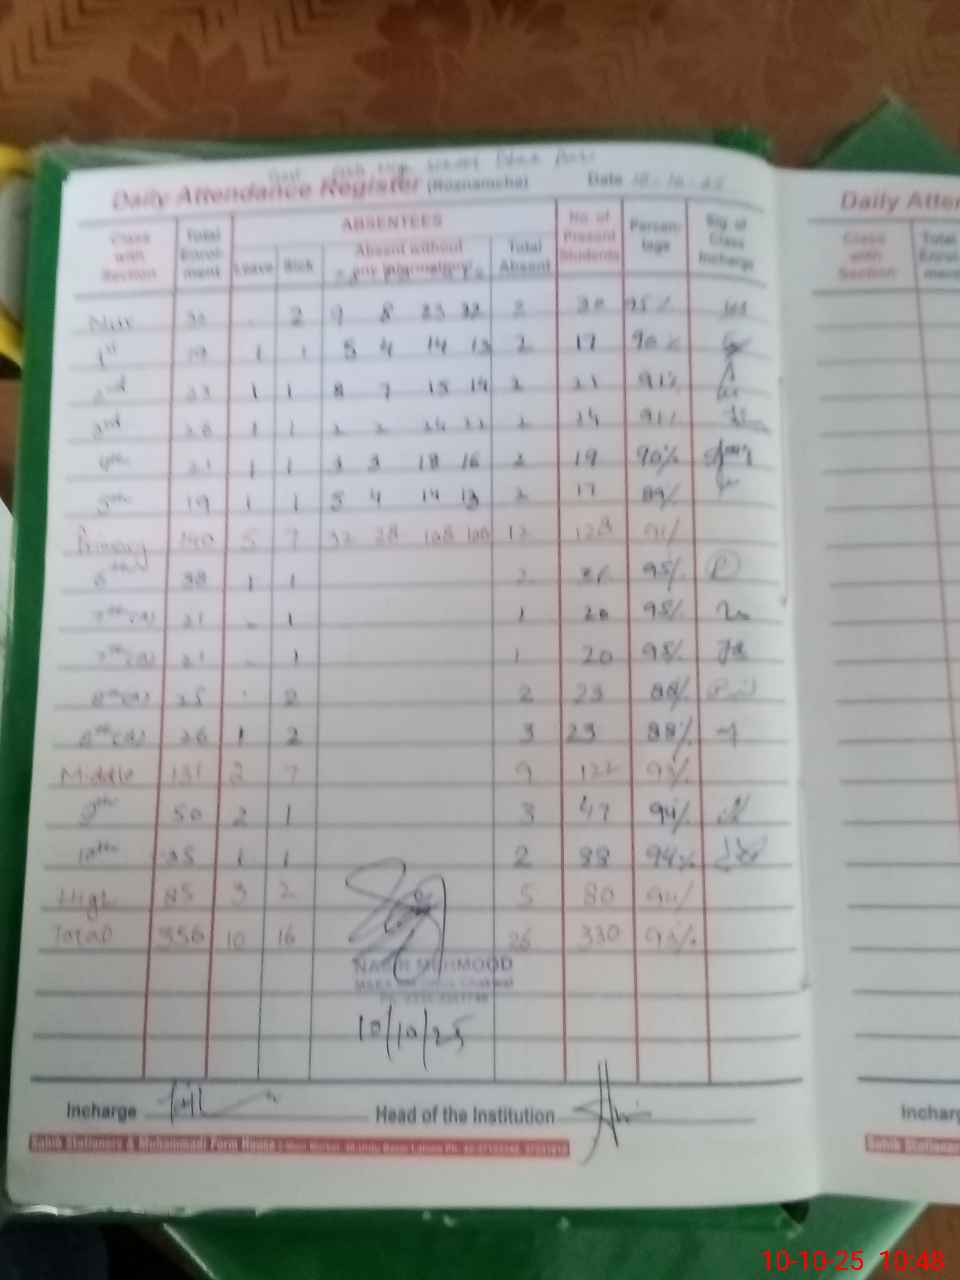 Daily Attendance Register (Roznamcha) Date 10-10-25
Daily Atten
Class with Section
Total Enrol-ment
ABSENTEES
Leave
Sick
Absent without any information
Total Absent
No. of Present Students
Percen-tage
Sig. of Class Incharge
Class with Section
Total Enrol-ment
2 9 8 23 22 2 30 95%
1st 19 1 1 5 4 14 13 2 17 90%
2nd 23 1 1 8 7 15 14 2 21 91%
3rd 26 1 1 2 2 24 22 2 24 91%
4th 21 1 1 3 3 18 16 2 19 90%
5th 19 1 1 5 4 14 13 2 17 89%
Primary 140 5 7 32 28 108 100 12 128 91%
6th 38 1 1 2 36 95%
7th (A) 21 - 1 1 20 95%
7th (B) 21 - 1 1 20 95%
8th (A) 25 - 2 2 23 88%
8th (B) 26 1 2 3 23 88%
Middle 131 2 7 9 122 93%
9th 50 2 1 3 47 94%
10th 35 1 1 2 33 94%
High 85 3 2 5 80 94%
Total 356 10 16 26 330 93%
MEHMOOD
10/10/25
Incharge Head of the Institution
Incharg
Sabik Stationery & Muhammadi Form House
Sabik Stationer
10-10-25 10:48